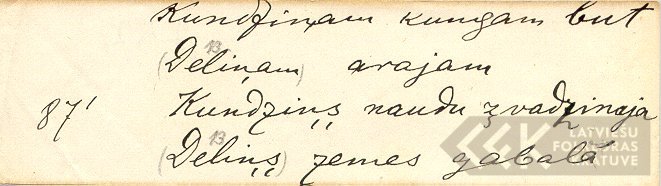 Kundziņam kungam but
(Deliņam) arajam
13
87' Kundziņš naudu žvadzinaja
(Deliņš) zemes gabalā
13
LATVIEŠU
FOLKLORAS
KRĀTUVE